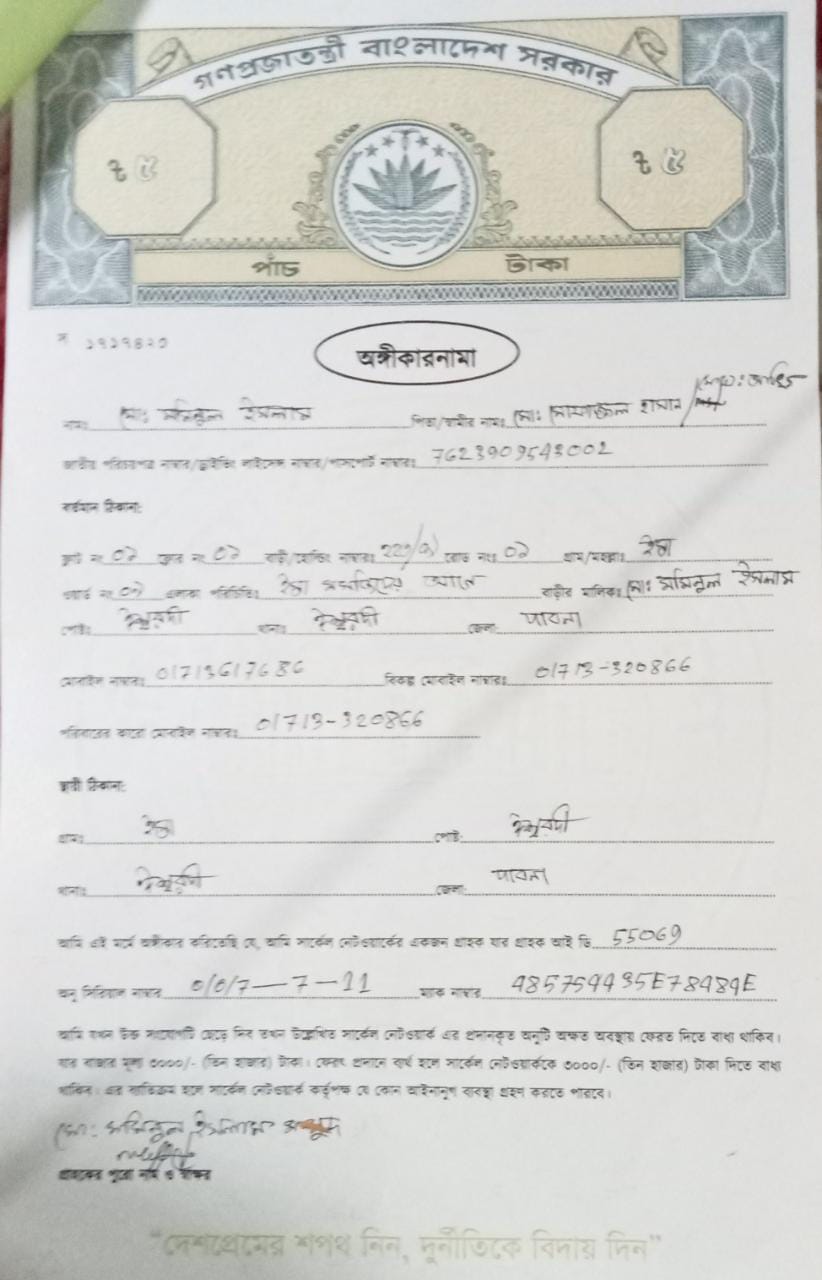 গনপ্রজাতন্ত্রী বাংলাদেশ সরকার
৳ ৫ ৳ ৫
পাঁচ টাকা
অঙ্গীকারনামা
নামঃ মোঃ মমিনুল ইসলাম পিতা/স্বামীর নামঃ মোঃ
জাতীয় পরিচয়পত্র নাম্বার/ড্রাইভিং লাইসেন্স নাম্বার/পাসপোর্ট নাম্বারঃ 7623909543002
বর্তমান ঠিকানা:
ফ্লাট নং ০১ ফ্লোর নং ০১ বাড়ী/হোল্ডিং নাম্বারঃ রোড নংঃ ০১ গ্রাম/মহল্লাঃ
ওয়ার্ড নং এলাকা পরিচিতিঃ বাড়ীর মালিকঃ মোঃ মমিনুল ইসলাম
পোষ্টঃ ঈশ্বরদী থানাঃ ঈশ্বরদী জেলাঃ পাবনা
মোবাইল নাম্বারঃ 01713617686 বিকল্প মোবাইল নাম্বারঃ 01713-320866
পরিবারের কারো মোবাইল নাম্বারঃ 01713-320866
স্থায়ী ঠিকানা:
গ্রামঃ পোষ্টঃ ঈশ্বরদী
থানাঃ ঈশ্বরদী জেলাঃ পাবনা
আমি এই মর্মে অঙ্গীকার করিতেছি যে, আমি সার্কেল নেটওয়ার্কের একজন গ্রাহক যার গ্রাহক আই ডি 55069
অনু সিরিয়াল নাম্বার 0/0/7-7-11 ম্যাক নাম্বার 485759435E78484E
আমি যখন উক্ত সংযোগটি ছেড়ে দিব তখন উল্লেখিত সার্কেল নেটওয়ার্ক এর প্রদানকৃত অনুটি অক্ষত অবস্থায় ফেরত দিতে বাধ্য থাকিব।
যার বাজার মূল্য ৩০০০/- (তিন হাজার) টাকা। ফেরৎ প্রদানে ব্যর্থ হলে সার্কেল নেটওয়ার্ককে ৩০০০/- (তিন হাজার) টাকা দিতে বাধ্য
থাকিব। এর ব্যতিক্রম হলে সার্কেল নেটওয়ার্ক কর্তৃপক্ষ যে কোন আইনানুগ ব্যবস্থা গ্রহণ করতে পারবে।
মোঃ মমিনুল ইসলাম
গ্রাহকের পুরো নাম ও স্বাক্ষর
"দেশপ্রেমের শপথ নিন, দুর্নীতিকে বিদায় দিন"